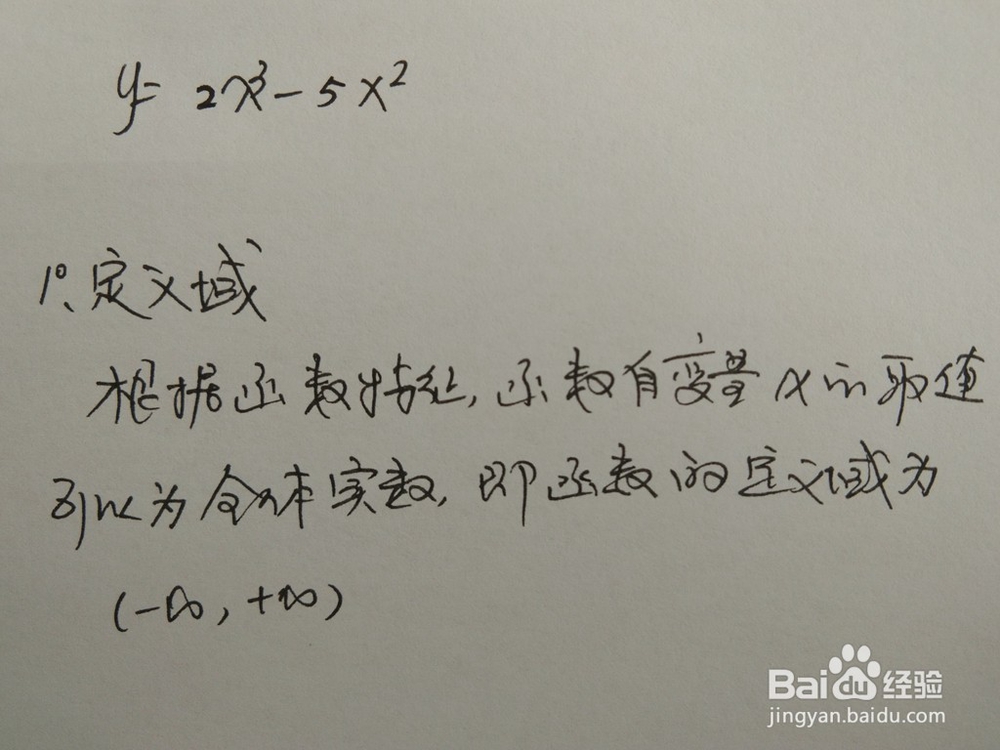 y= 2x³-5x²
1°、定义域
根据函数特征,函数自变量x的取值
可以为全体实数,即函数的定义域为
(-∞,+∞)
Baidu经验
jingyan.baidu.com